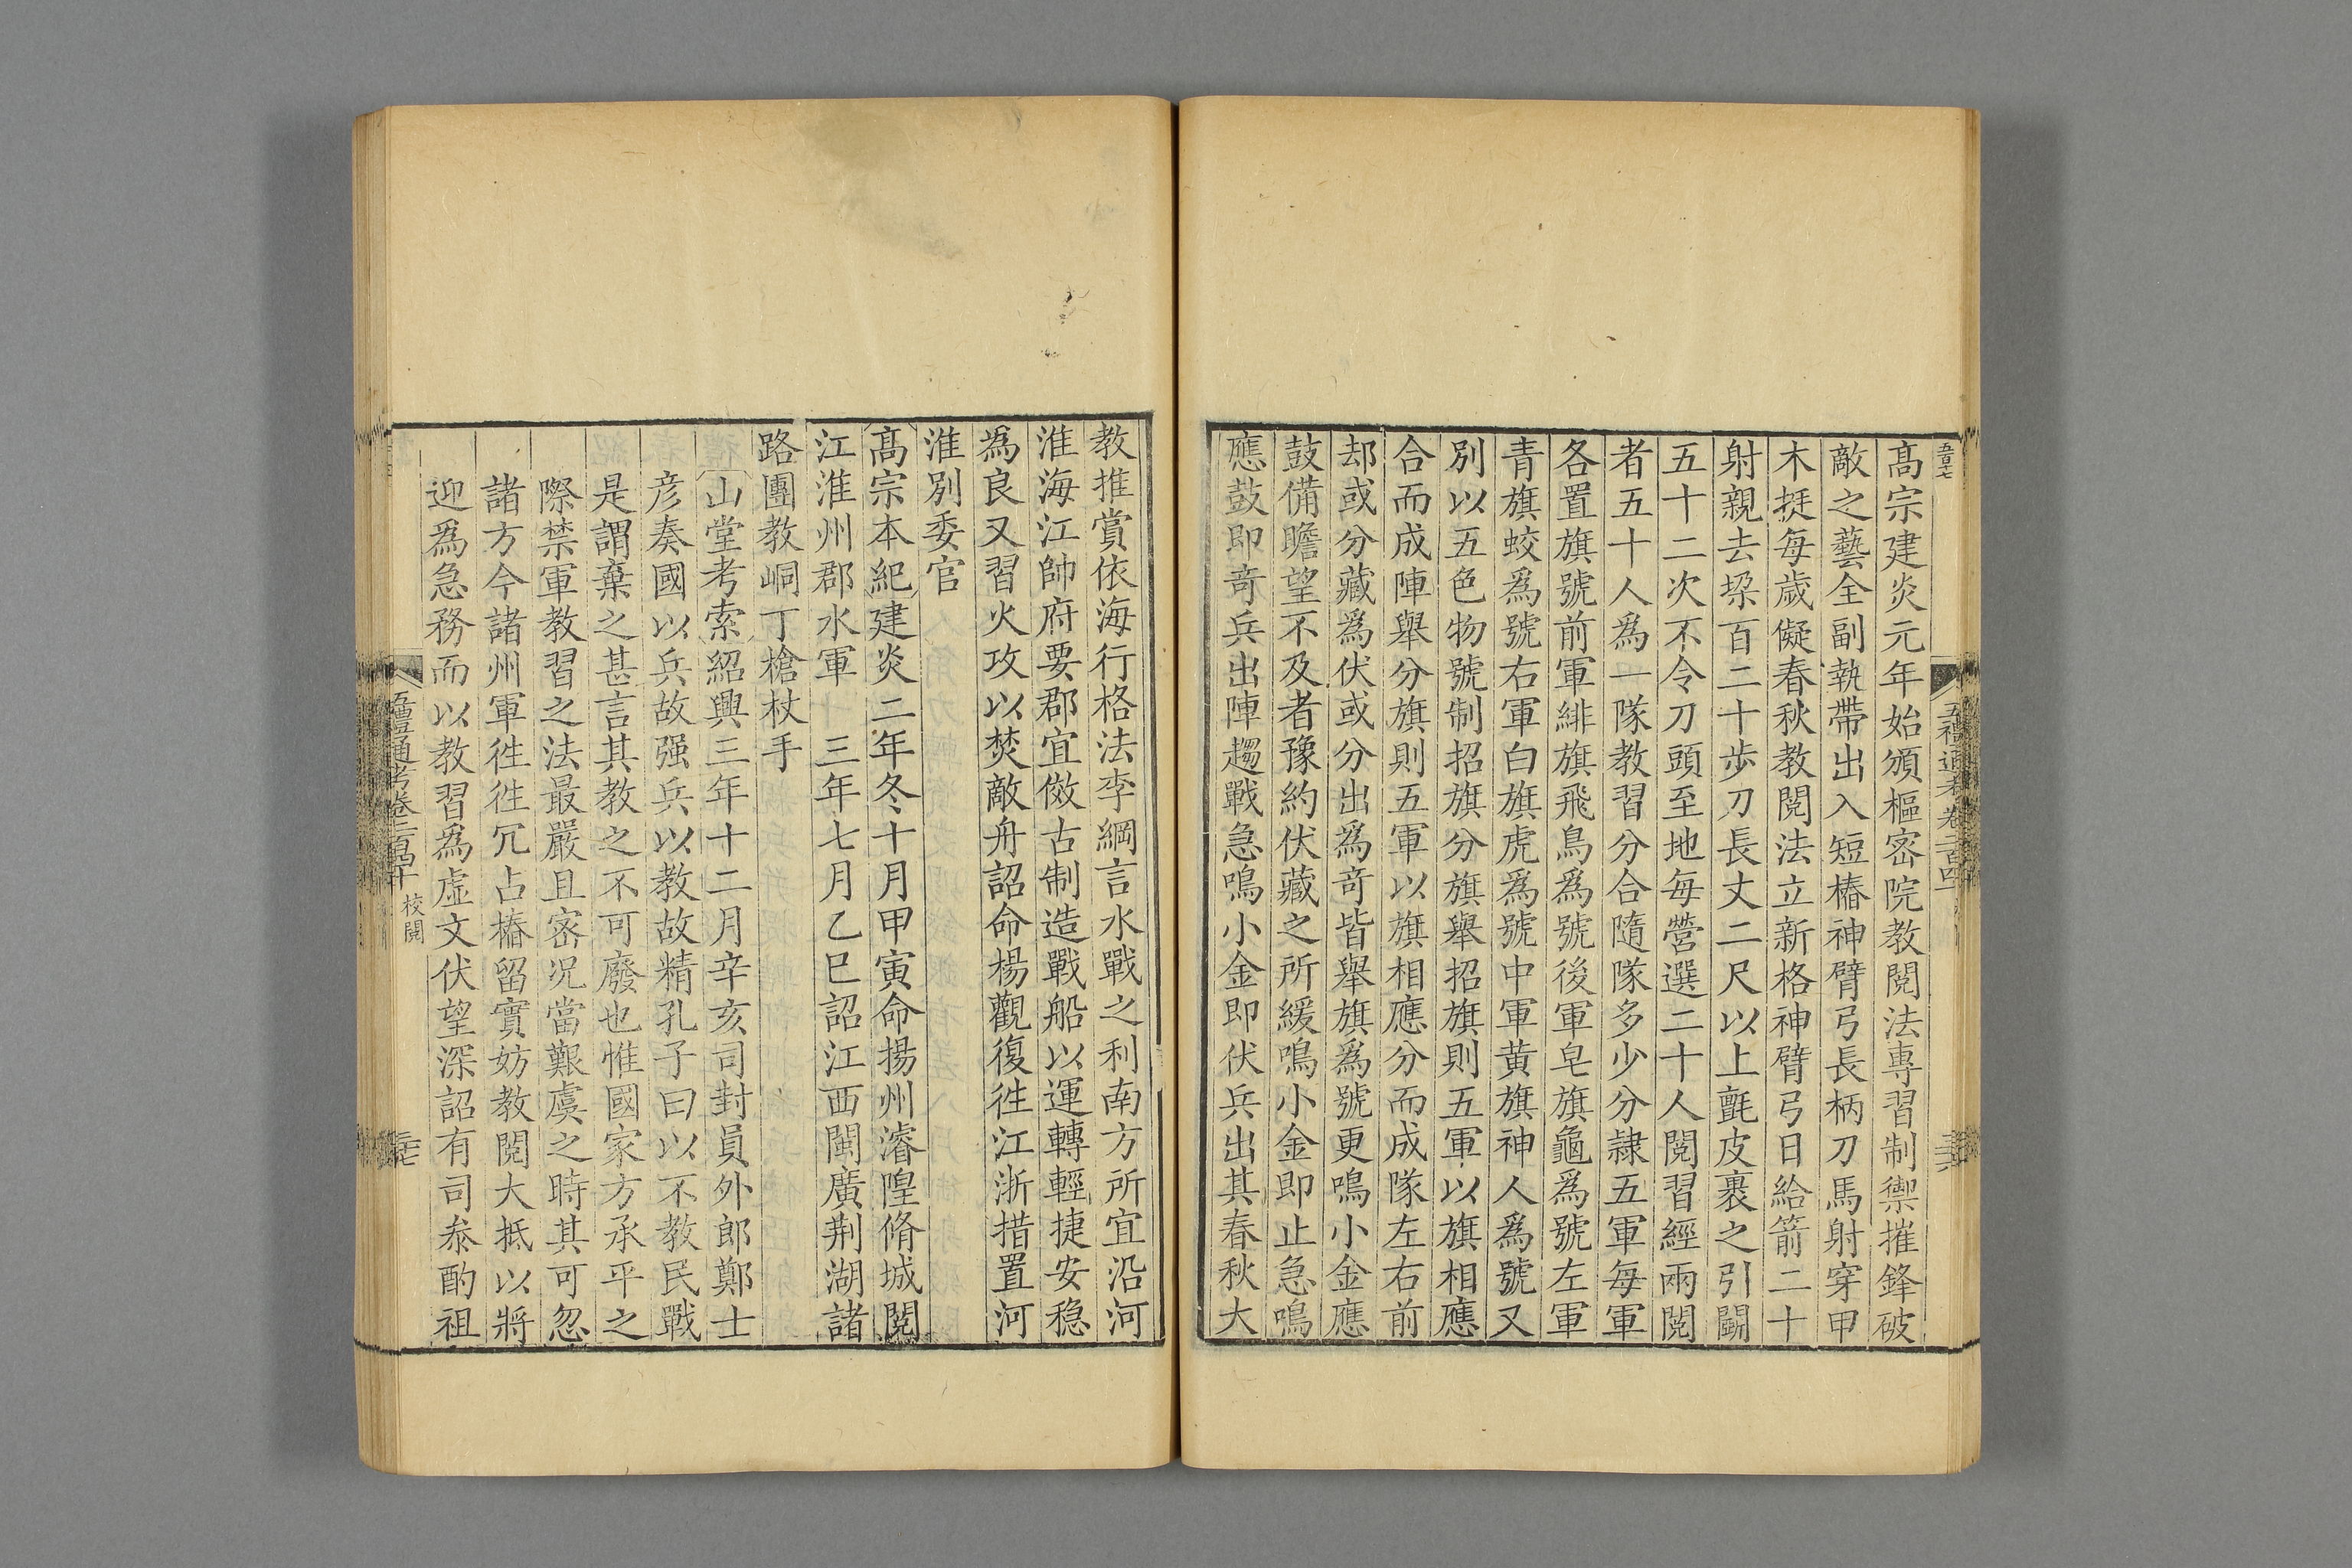 高宗建炎元年始頒樞密院教閱法專習制禦摧鋒破
敵之藝全副執帶出入短樁神臂弓長柄刀馬射穿甲
木挺每歲儗春秋教閱法立新格神臂弓日給箭二十
射親去垛百二十步刀長丈二尺以上氈皮裹之引鬭
五十二次不令刀頭至地每營選二十人閱習經兩閱
者五十人爲一隊教習分合隨隊多少分隷五軍每軍
各置旗號前軍緋旗飛鳥爲號後軍皂旗龜爲號左軍
青旗蛟爲號右軍白旗虎爲號中軍黄旗神人爲號又
別以五色物號制招旗分旗舉招旗則五軍以旗相應
合而成陣舉分旗則五軍以旗相應分而成隊左右前
却或分藏爲伏或分出爲竒皆舉旗爲號更鳴小金應
鼓備瞻望不及者豫約伏藏之所緩鳴小金即止急鳴
應鼓即竒兵出陣趨戰急鳴小金即伏兵出其春秋大
教推賞依海行格法李綱言水戰之利南方所宜沿河
淮海江帥府要郡宜倣古制造戰船以運轉輕捷安穏
爲良又習火攻以焚敵舟詔命楊觀復徃江浙措置河
淮別委官
高宗本紀建炎二年冬十月甲寅命揚州濬隍脩城閱
江淮州郡水軍 三年七月乙巳詔江西閩廣荆湖諸
路團教峒丁槍杖手
山堂考索紹興三年十二月辛亥司封員外郎鄭士
彦奏國以兵故强兵以教故精孔子曰以不教民戰
是謂棄之甚言其教之不可廢也惟國家方承平之
際禁軍教習之法最嚴且密况當艱虞之時其可忽
諸方今諸州軍徃徃冗占樁留實妨教閱大抵以將
迎爲急務而以教習爲虚文伏望深詔有司叅酌祖
五禮通考卷二百四十 校閱